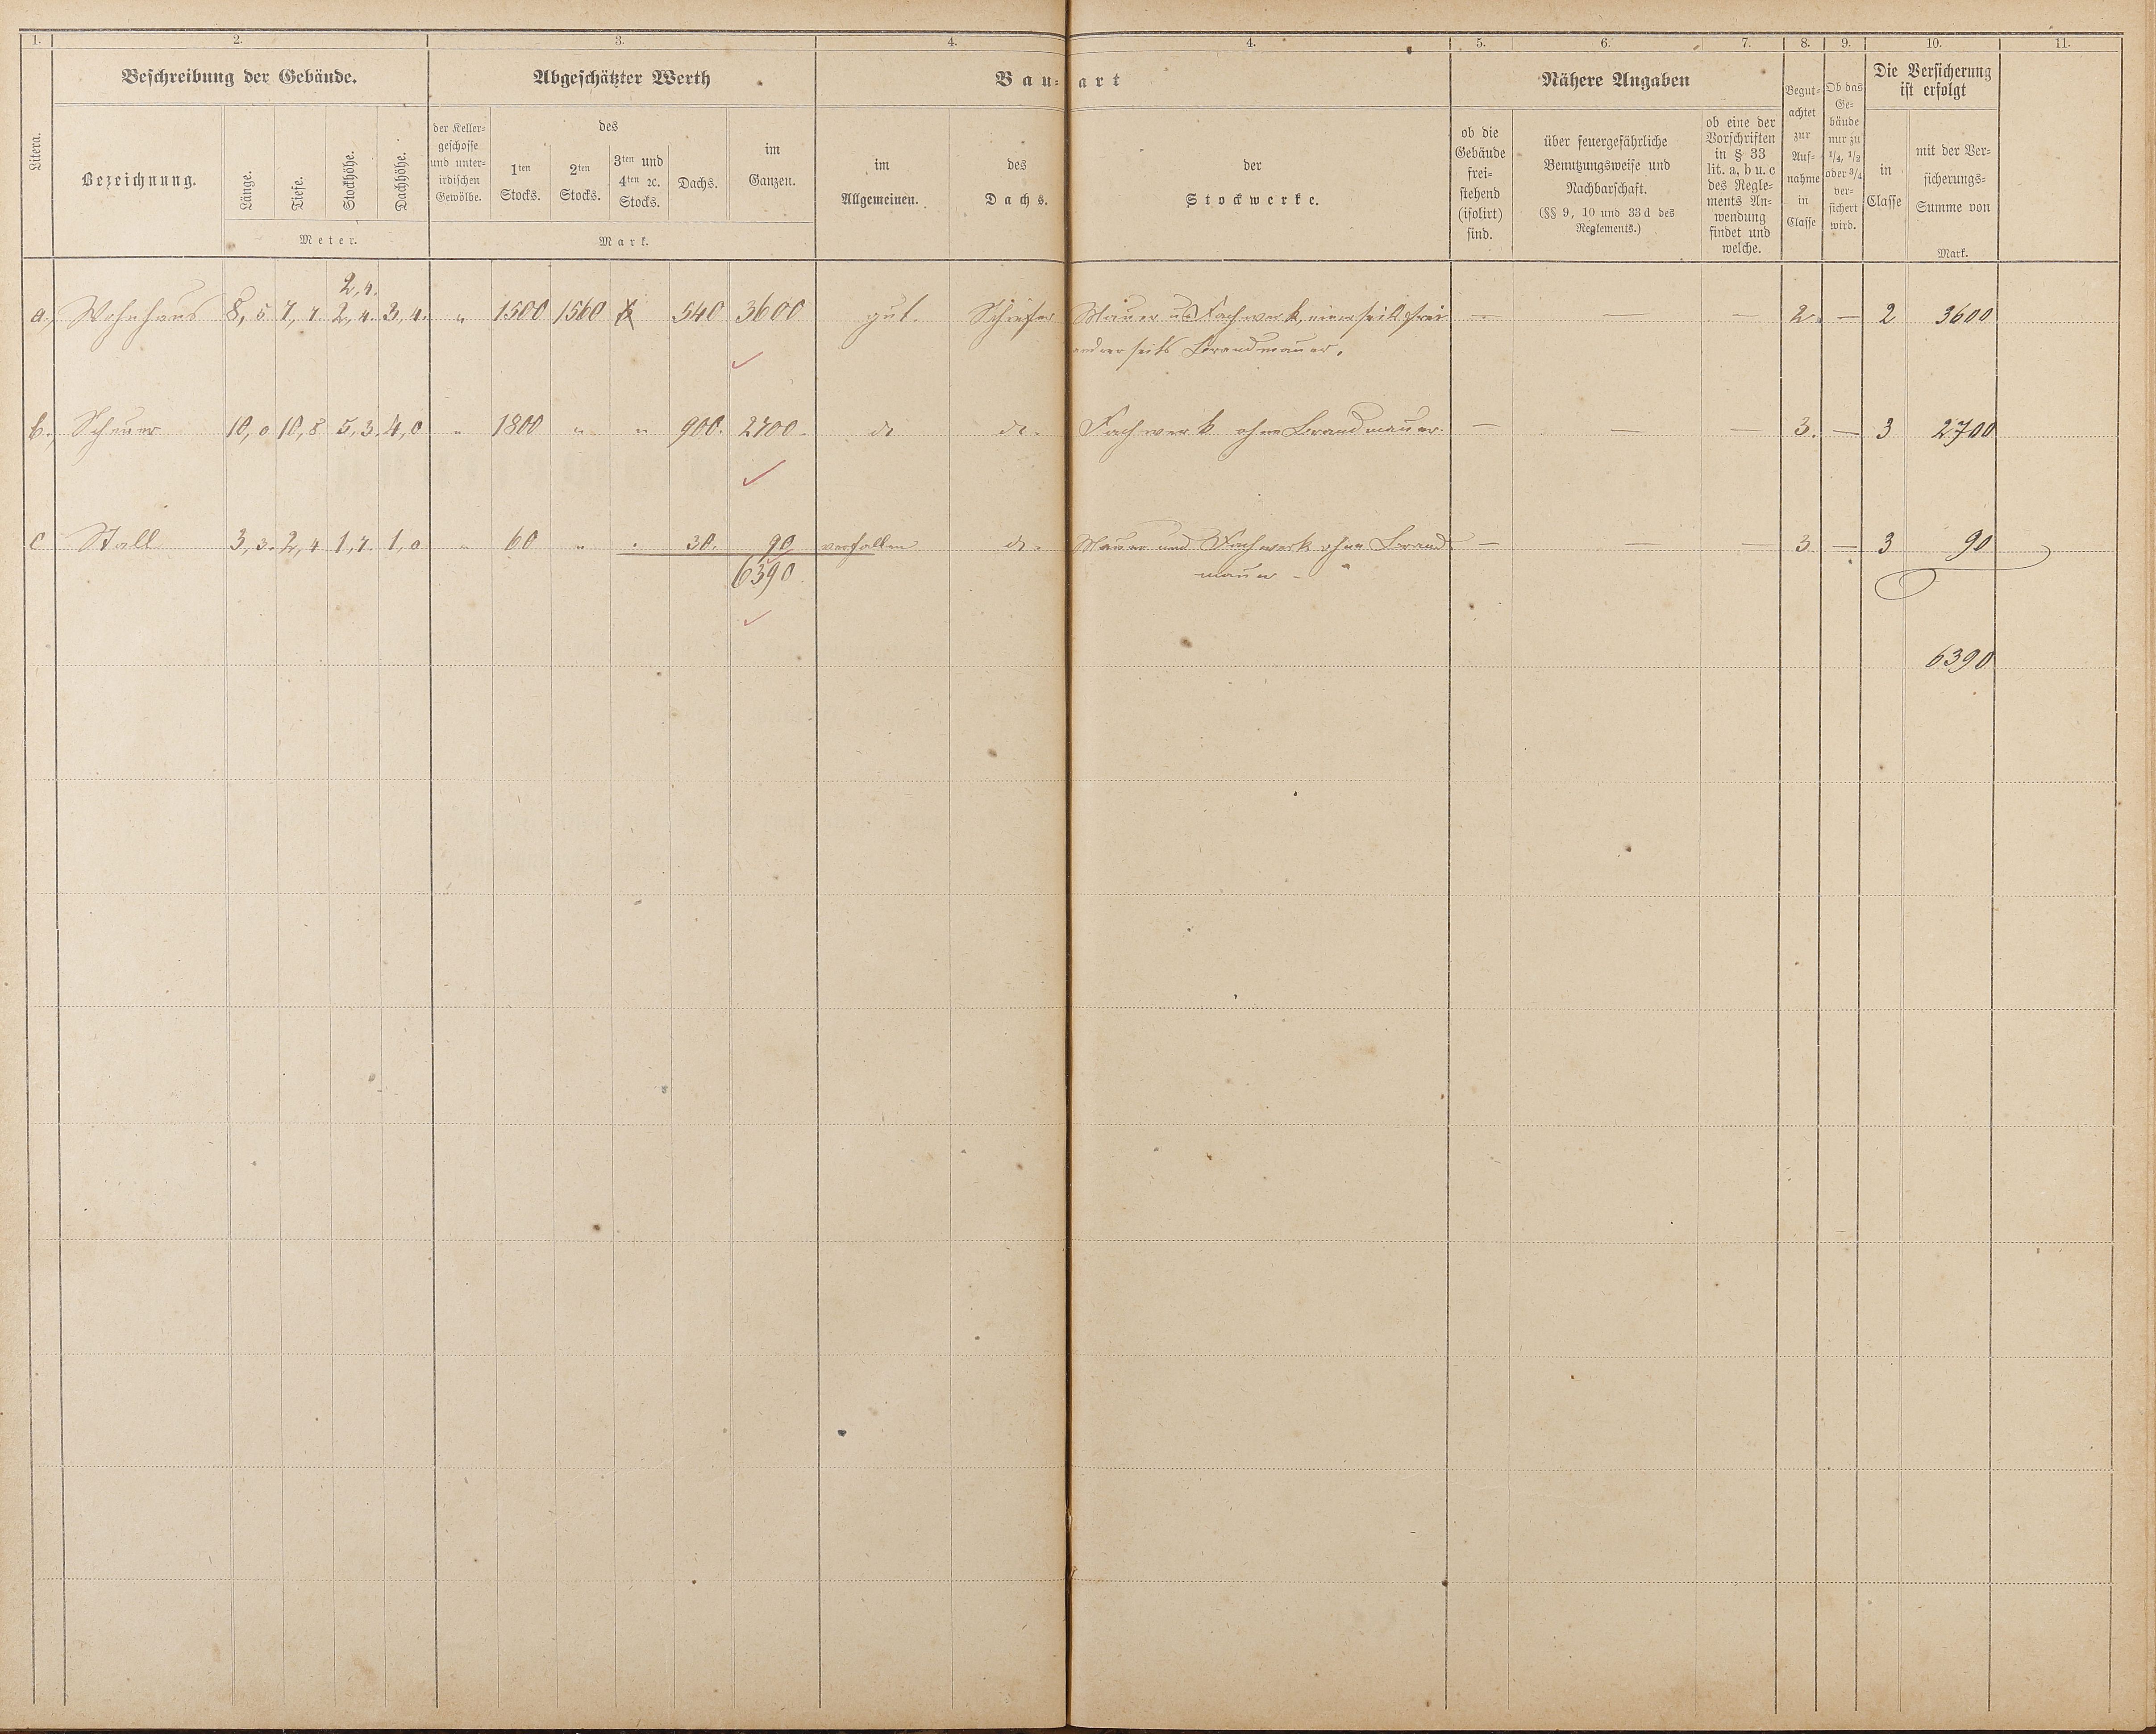 1. 2. 3. 4. 4. 5. 6. 7. 8. 9. 10. 11.
Beschreibung der Gebäude. Abgeschätzter Werth Bau- art Nähere Angaben
Litera.
Bezeichnung.
Länge. Tiefe. Stockhöhe. Dachhöhe.
Meter.
der Keller-
geschosse
und unter-
irdischen
Gewölbe.
des
1ten
Stocks.
2ten
Stocks.
3ten und
4ten ꝛc.
Stocks.
Dachs.
im
Ganzen.
Mark.
im
Allgemeinen.
des
Dachs.
der
Stockwerke.
ob die
Gebäude
frei-
stehend
(isolirt)
sind.
über feuergefährliche
Benutzungsweise und
Nachbarschaft.
(§§ 9, 10 und 33d des
Reglements.)
ob eine der
Vorschriften
in § 33
lit. a, b u. c
des Regle-
ments An-
wendung
findet und
welche.
Begut-
achtet
zur
Auf-
nahme
in
Classe
Ob das
Ge-
bäude
nur zu
1/4, 1/2
oder 3/4
ver-
sichert
wird.
Die Versicherung
ist erfolgt
in
Classe
mit der Ver-
sicherungs-
Summe von
Mark.
2,4.
a. Wohnhaus 8,5 7,7. 2,4. 3,4. " 1500 1560 540 3600 gut. Schiefer Mauer u Fachwerk, einerseits frei — — — 2. — 2 3600
andrerseits Brandmauer.
b. Scheuer 10,0 10,8 5,3. 4,0 " 1800 " " 900. 2700. do do. Fachwerk ohne Brandmauer. — — — 3. — 3 2700
c Stall 3,3. 2,4 1,7. 1,0 " 60 " " 30. 90 verfallen do. Mauer und Fachwerk ohne Brand — — — 3 — 3 90
6390 mauer
6390